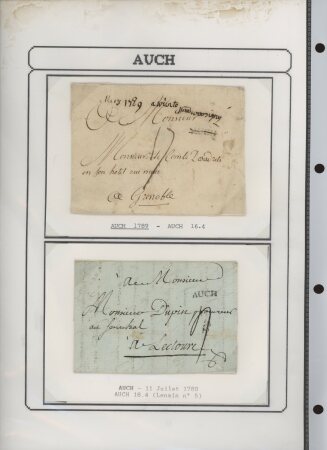 AUCH
Mars 1789
Monsieur
Monsieur le Comte
en son hotel rue
a Grenoble
AUCH 1789 - AUCH 16.4
A Monsieur
AUCH
Monsieur Dupin procureur
au senechal
A Lectoure
AUCH - 11 Juillet 1780
AUCH 16.4 (Lenain n° 5)